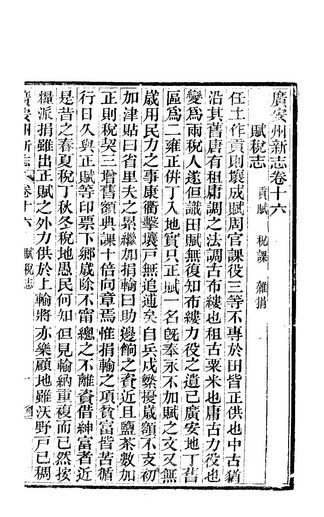 廣安州新志卷十六
賦稅志 貢賦 稅課 雜捐
任土作貢則壤成賦周官課役三等不專於田皆正供也中古猶
沿其舊唐有租庸調之法調古布縷也租古粟米也庸古力役也
變為兩稅人遂但識田賦無復知布縷力役之遺已廣安地丁舊
區為二雍正併丁入地實只正賦一名旣奉永不加賦之文又無
歲用民力之事康衢擊壤戸無追逋矣自兵戍獘擾歲額不支初
加津貼曰省里夫之累繼加捐輸曰助邊餉之資近且鹽茶數加
正則稅契三增舊額典課十倍向章焉惟捐輸之項貧富皆苦循
行日久與正賦等印票下鄉歲除不甯總之不離資借紳富者近
是昔之春夏稅丁秋冬稅地愚民何知但見輸納重複而已然按
糧派捐雖出正賦之外力供於上輸將亦樂顧地雖沃野戸已稠
廣安州新志 卷十六 賦稅志 一